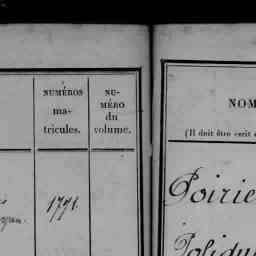 NUMÉROS
ma-
tricules.
NU-
MÉRO
du
volume.
1791.
NOM
(Il doit être écrit
Poirie